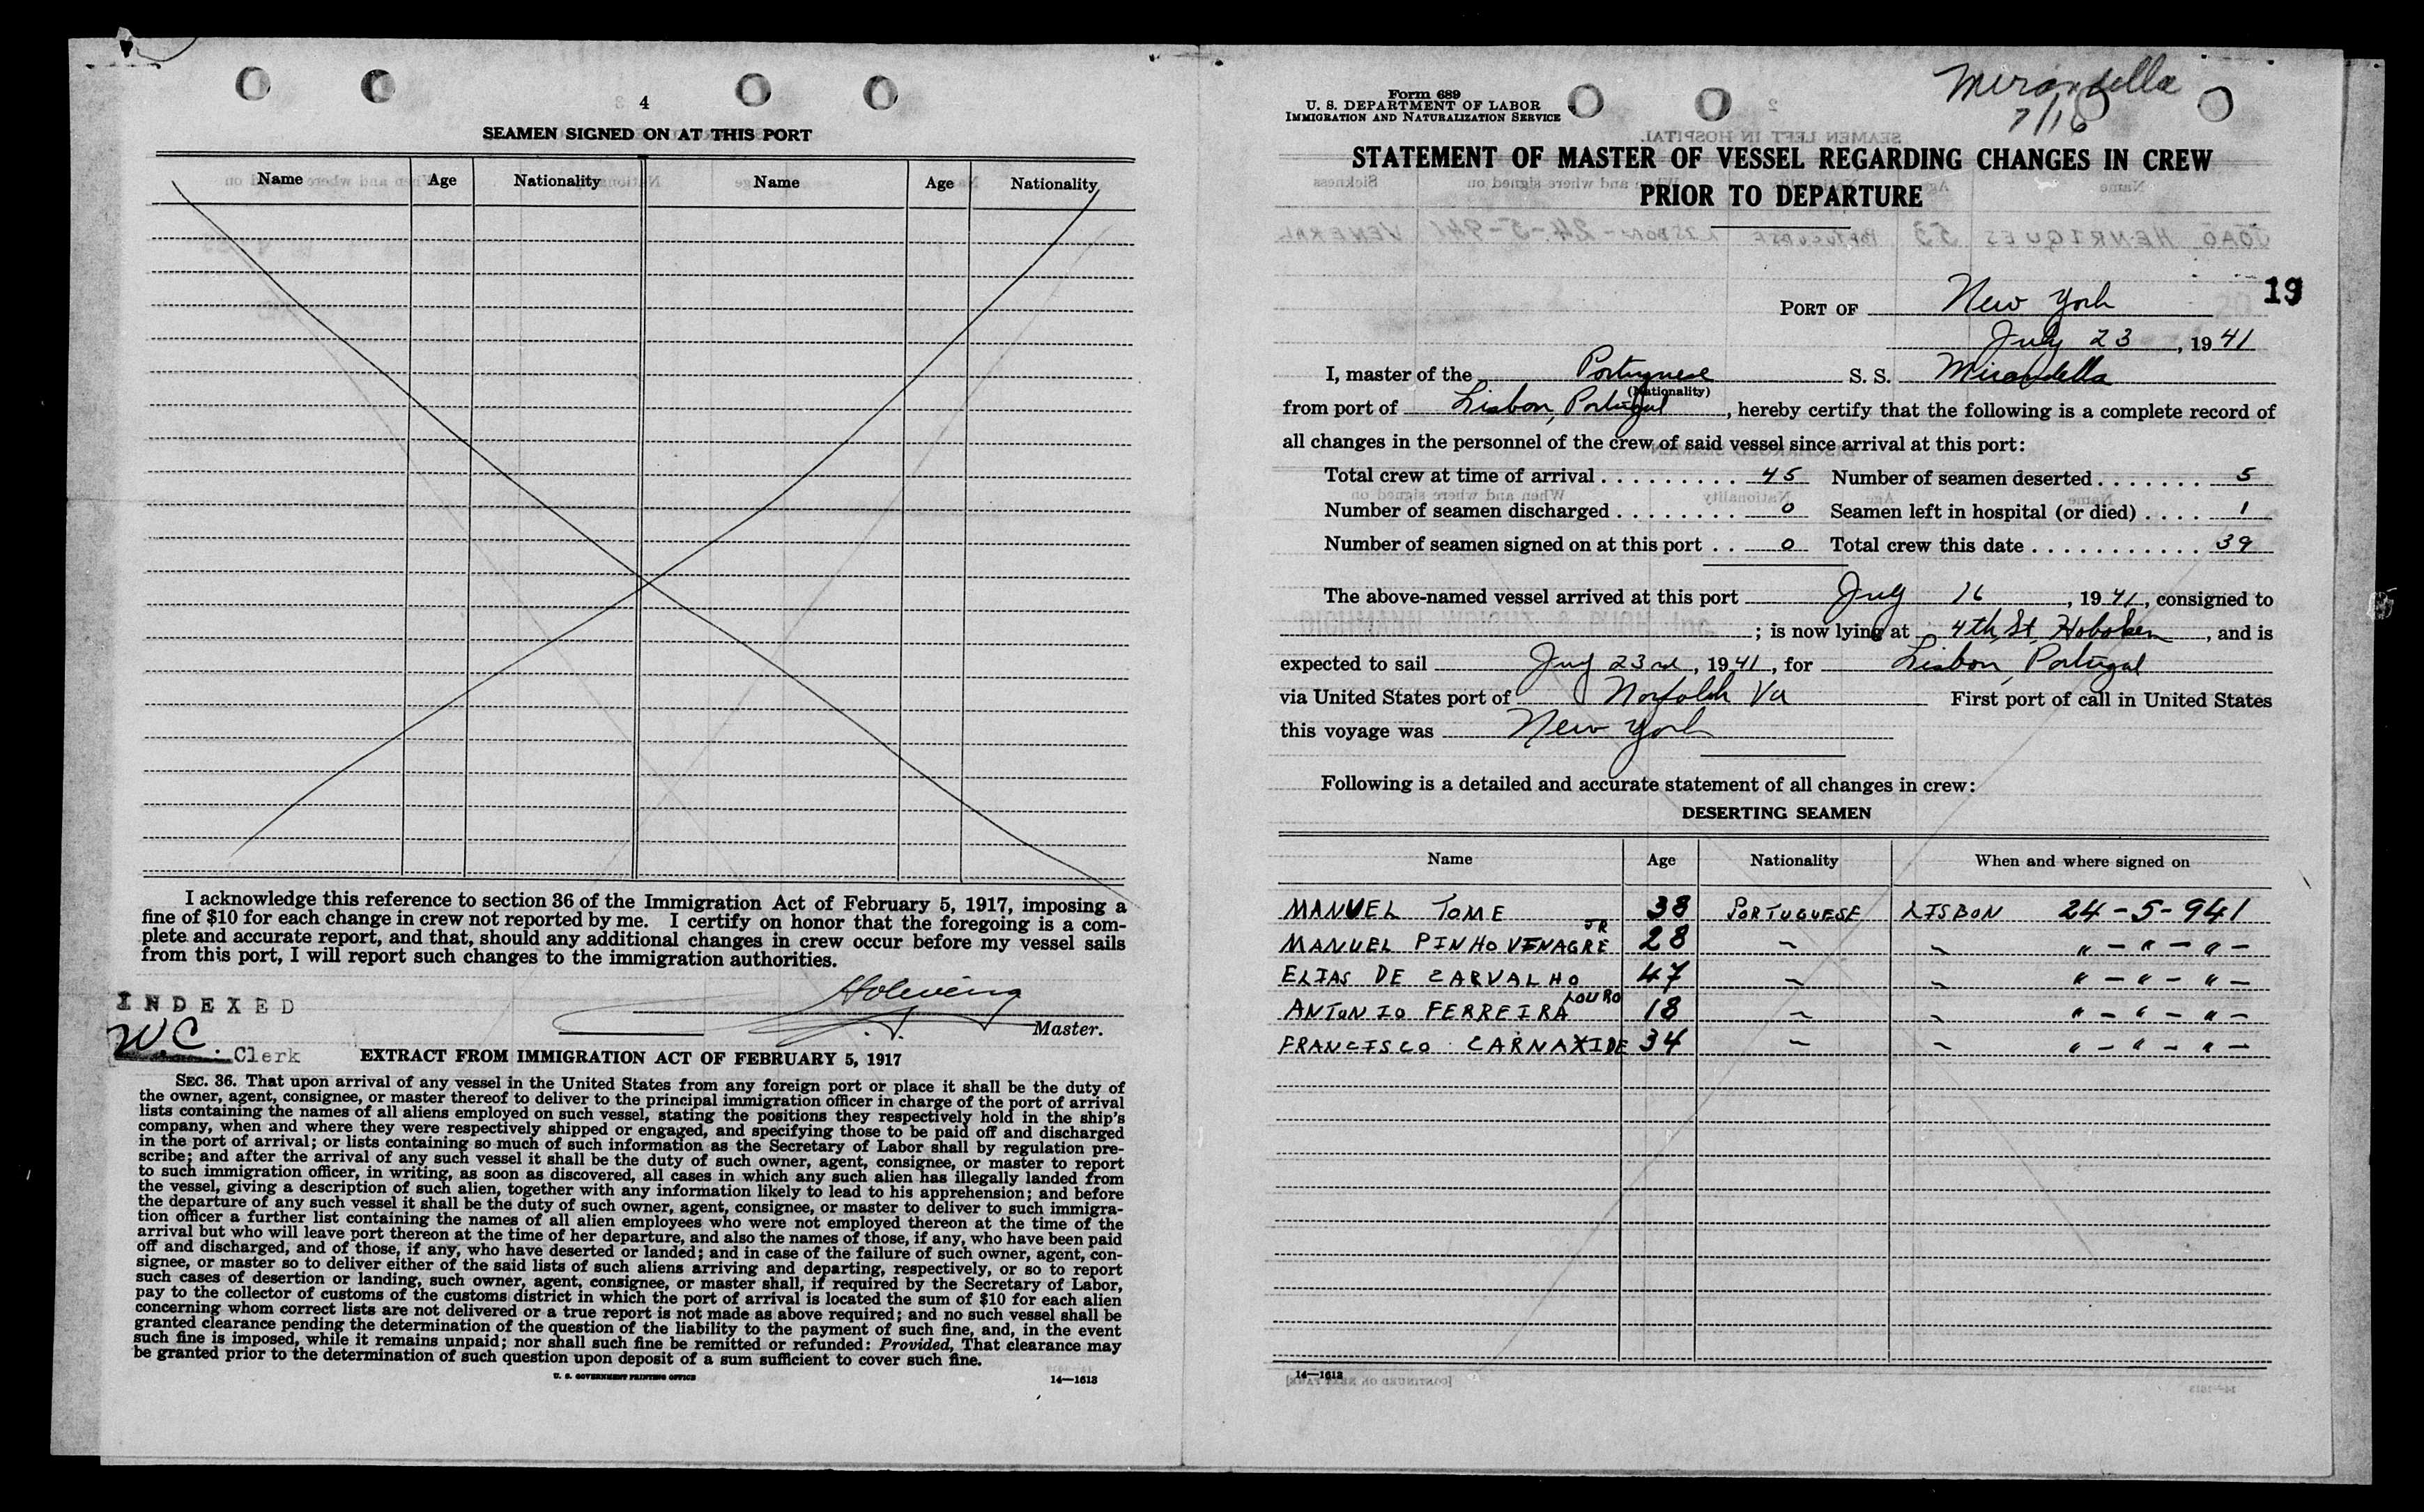 4
SEAMEN SIGNED ON AT THIS PORT
Name Age Nationality Name Age Nationality
I acknowledge this reference to section 36 of the Immigration Act of February 5, 1917, imposing a
fine of $10 for each change in crew not reported by me. I certify on honor that the foregoing is a com-
plete and accurate report, and that, should any additional changes in crew occur before my vessel sails
from this port, I will report such changes to the immigration authorities.
INDEXED
WC. Clerk
Master.
EXTRACT FROM IMMIGRATION ACT OF FEBRUARY 5, 1917
SEC. 36. That upon arrival of any vessel in the United States from any foreign port or place it shall be the duty of
the owner, agent, consignee, or master thereof to deliver to the principal immigration officer in charge of the port of arrival
lists containing the names of all aliens employed on such vessel, stating the positions they respectively hold in the ship's
company, when and where they were respectively shipped or engaged, and specifying those to be paid off and discharged
in the port of arrival; or lists containing so much of such information as the Secretary of Labor shall by regulation pre-
scribe; and after the arrival of any such vessel it shall be the duty of such owner, agent, consignee, or master to report
to such immigration officer, in writing, as soon as discovered, all cases in which any such alien has illegally landed from
the vessel, giving a description of such alien, together with any information likely to lead to his apprehension; and before
the departure of any such vessel it shall be the duty of such owner, agent, consignee, or master to deliver to such immigra-
tion officer a further list containing the names of all alien employees who were not employed thereon at the time of the
arrival but who will leave port thereon at the time of her departure, and also the names of those, if any, who have been paid
off and discharged, and of those, if any, who have deserted or landed; and in case of the failure of such owner, agent, con-
signee, or master so to deliver either of the said lists of such aliens arriving and departing, respectively, or so to report
such cases of desertion or landing, such owner, agent, consignee, or master shall, if required by the Secretary of Labor,
pay to the collector of customs of the customs district in which the port of arrival is located the sum of $10 for each alien
concerning whom correct lists are not delivered or a true report is not made as above required; and no such vessel shall be
granted clearance pending the determination of the question of the liability to the payment of such fine, and, in the event
such fine is imposed, while it remains unpaid; nor shall such fine be remitted or refunded: Provided, That clearance may
be granted prior to the determination of such question upon deposit of a sum sufficient to cover such fine.
U. S. GOVERNMENT PRINTING OFFICE 14—1613
Mirandella
7/16
Form 689
U. S. DEPARTMENT OF LABOR
IMMIGRATION AND NATURALIZATION SERVICE
STATEMENT OF MASTER OF VESSEL REGARDING CHANGES IN CREW
PRIOR TO DEPARTURE
19
PORT OF New York
July 23, 1941
I, master of the Portuguese S. S. Mirandella
(Nationality)
from port of Lisbon, Portugal, hereby certify that the following is a complete record of
all changes in the personnel of the crew of said vessel since arrival at this port:
Total crew at time of arrival . . . . . . . . . 45 Number of seamen deserted . . . . . . . 5
Number of seamen discharged . . . . . . . . 0 Seamen left in hospital (or died) . . . . 1
Number of seamen signed on at this port . . 0 Total crew this date . . . . . . . . . . . 39
The above-named vessel arrived at this port July 16, 1941, consigned to
; is now lying at 4th St Hoboken, and is
expected to sail July 23rd, 1941, for Lisbon, Portugal
via United States port of Norfolk Va First port of call in United States
this voyage was New York
Following is a detailed and accurate statement of all changes in crew:
DESERTING SEAMEN
Name Age Nationality When and where signed on
MANUEL TOME 38 PORTUGUESE LISBON 24-5-941
MANUEL PINHO VINAGRE JR 28 ~ ~ " - " - " -
ELIAS DE CARVALHO 47 ~ ~ " - " - " -
ANTONIO FERREIRA LOURO 18 ~ ~ " - " - " -
FRANCISCO CARNAXIDE 34 ~ ~ " - " - " -
14—1613